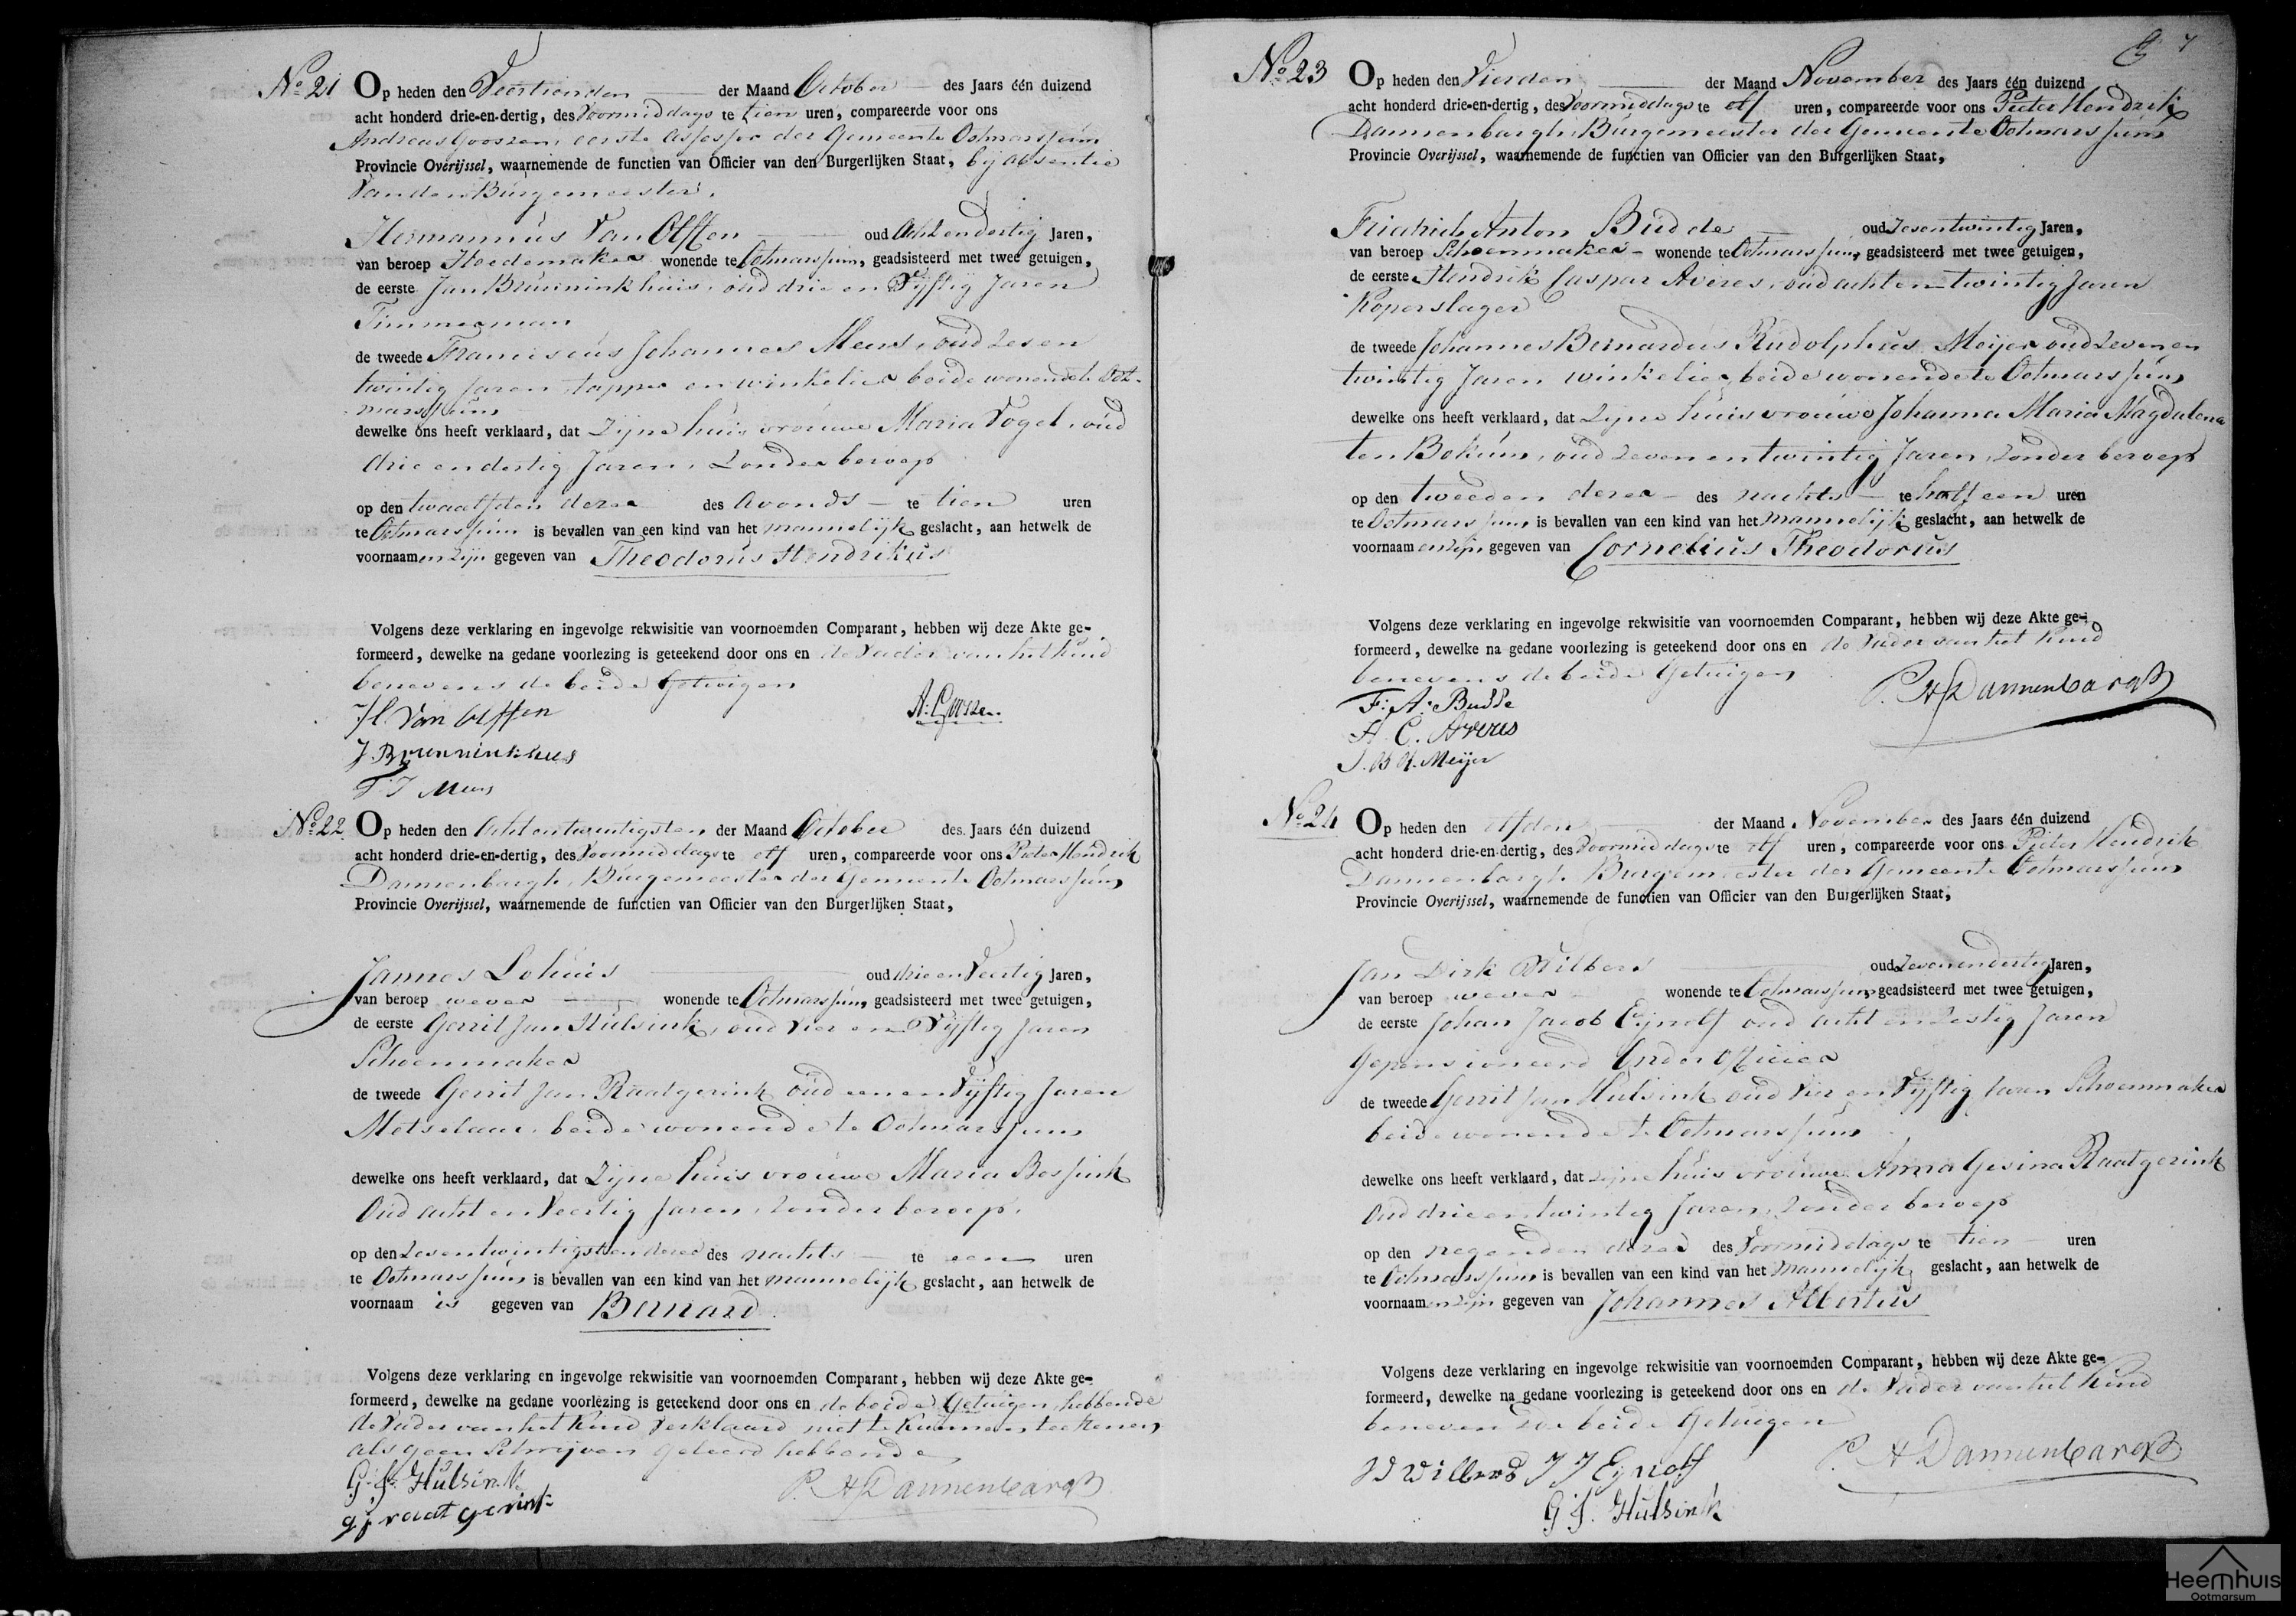 No 21 Op heden den Veertienden der Maand October des Jaars één duizend
acht honderd drie-en-dertig, des Voormiddags te tien uren, compareerde voor ons
Andreas Goossen, eerste assessor der Gemeente Ootmarssum
Provincie Overijssel, waarnemende de functien van Officier van den Burgerlijken Staat, bij absentie
van den Burgemeester.
Hermannus Van Olffen oud Achtendertig Jaren,
van beroep Hoedemaker wonende te Ootmarssum, geadsisteerd met twee getuigen,
de eerste Jan Brüninkhuis, oud drie en Vijftig Jaren
Timmerman
de tweede Franciscus Johannes Meus, oud zes en
twintig Jaren tapper en winkelier beide wonende te Oot-
marssum
dewelke ons heeft verklaard, dat Zijne huisvrouwe Maria Vogel, oud
drie en dertig Jaren, Zonder beroep
op den twaalfden dezer des Avonds te tien uren
te Ootmarssum is bevallen van een kind van het mannelijk geslacht, aan hetwelk de
voornaamen zijn gegeven van Theodorus Hendrikus
Volgens deze verklaring en ingevolge rekwisitie van voornoemden Comparant, hebben wij deze Akte ge-
formeerd, dewelke na gedane voorlezing is geteekend door ons en de Vader van het Kind
benevens de beide Getuigen
H Van Olffen
A: Goossen.
J. Brunninkhuis
F. J Meus
No 22 Op heden den Achtentwintigsten der Maand October des Jaars één duizend
acht honderd drie-en-dertig, des Voormiddags te elf uren, compareerde voor ons Pieter Hendrik
Dannenbargh, Burgemeester der Gemeente Ootmarssum
Provincie Overijssel, waarnemende de functien van Officier van den Burgerlijken Staat,
Jannes Lohuis oud drie en Veertig Jaren,
van beroep wever wonende te Ootmarssum, geadsisteerd met twee getuigen,
de eerste Gerrit Jan Hulsink, oud Vier en Vijftig Jaren
Schoenmaker
de tweede Gerrit Jan Raatgerink oud een en Vijftig Jaren
Metselaar, beide wonende te Ootmarssum
dewelke ons heeft verklaard, dat Zijne huisvrouwe Maria Bossink
Oud acht en Veertig Jaren, Zonder beroep.
op den Zesentwintigsten dezer des nachts te een uren
te Ootmarssum is bevallen van een kind van het mannelijk geslacht, aan hetwelk de
voornaam is gegeven van Bernard
Volgens deze verklaring en ingevolge rekwisitie van voornoemden Comparant, hebben wij deze Akte ge-
formeerd, dewelke na gedane voorlezing is geteekend door ons en de beide Getuigen, hebbende
de Vader van het Kind Verklaard niet te Kunnen teekenen,
als geen Schrijven geleerd hebbende
G: J. Hulsink
P. H Dannenbargh
g j raatgerink
No 23 Op heden den Vierden der Maand November des Jaars één duizend
acht honderd drie-en-dertig, des Voormiddags te elf uren, compareerde voor ons Pieter Hendrik
Dannenbargh Burgemeester der Gemeente Ootmarssum
Provincie Overijssel, waarnemende de functien van Officier van den Burgerlijken Staat,
Fridrich Anton Budde oud Zesentwintig Jaren,
van beroep Schoenmaker wonende te Ootmarssum, geadsisteerd met twee getuigen,
de eerste Hendrik Caspar Averes, oud acht en twintig Jaren
Koperslager
de tweede Johannes Bernardus Rudolphus Meijer oud Zeven en
twintig Jaren winkelier, beide wonende te Ootmarssum
dewelke ons heeft verklaard, dat Zijne huisvrouwe Johanna Maria Magdalena
ten Bokum, oud Zeven en twintig Jaren, Zonder beroep
op den tweeden dezer des nachts te half een uren
te Ootmarssum is bevallen van een kind van het mannelijk geslacht, aan hetwelk de
voornaamen zijn gegeven van Cornelius Theodorus
Volgens deze verklaring en ingevolge rekwisitie van voornoemden Comparant, hebben wij deze Akte ge-
formeerd, dewelke na gedane voorlezing is geteekend door ons en de Vader van het Kind
benevens de beide Getuigen
P. H Dannenbargh
F: A: Budde
H. C. Averes
J. B R. Meijer
No 24 Op heden den elfden der Maand November des Jaars één duizend
acht honderd drie-en-dertig, des Voormiddags te elf uren, compareerde voor ons Pieter Hendrik
Dannenbargh Burgemeester der Gemeente Ootmarssum
Provincie Overijssel, waarnemende de functien van Officier van den Burgerlijken Staat,
Jan Dirk Wilbers oud Zevenendertig Jaren,
van beroep wever wonende te Ootmarssum, geadsisteerd met twee getuigen,
de eerste Johan Jacob Eijnolf oud acht en Zestig Jaren
Gepensioneerd Onder Officier
de tweede Gerrit Jan Hulsink oud Vier en Vijftig Jaren Schoenmaker
beide wonende te Ootmarssum
dewelke ons heeft verklaard, dat zijne huisvrouwe Anna Gesina Raatgerink
Oud drie en twintig Jaren, Zonder beroep
op den negenden dezer des Voormiddags te tien uren
te Ootmarssum is bevallen van een kind van het mannelijk geslacht, aan hetwelk de
voornaamen zijn gegeven van Johannes Albertus
Volgens deze verklaring en ingevolge rekwisitie van voornoemden Comparant, hebben wij deze Akte ge-
formeerd, dewelke na gedane voorlezing is geteekend door ons en de Vader van het Kind
benevens de beide Getuigen
P. H Dannenbargh
J D Wilbers J J Eijnolf
G J. Hulsink
Heemhuis
Ootmarsum